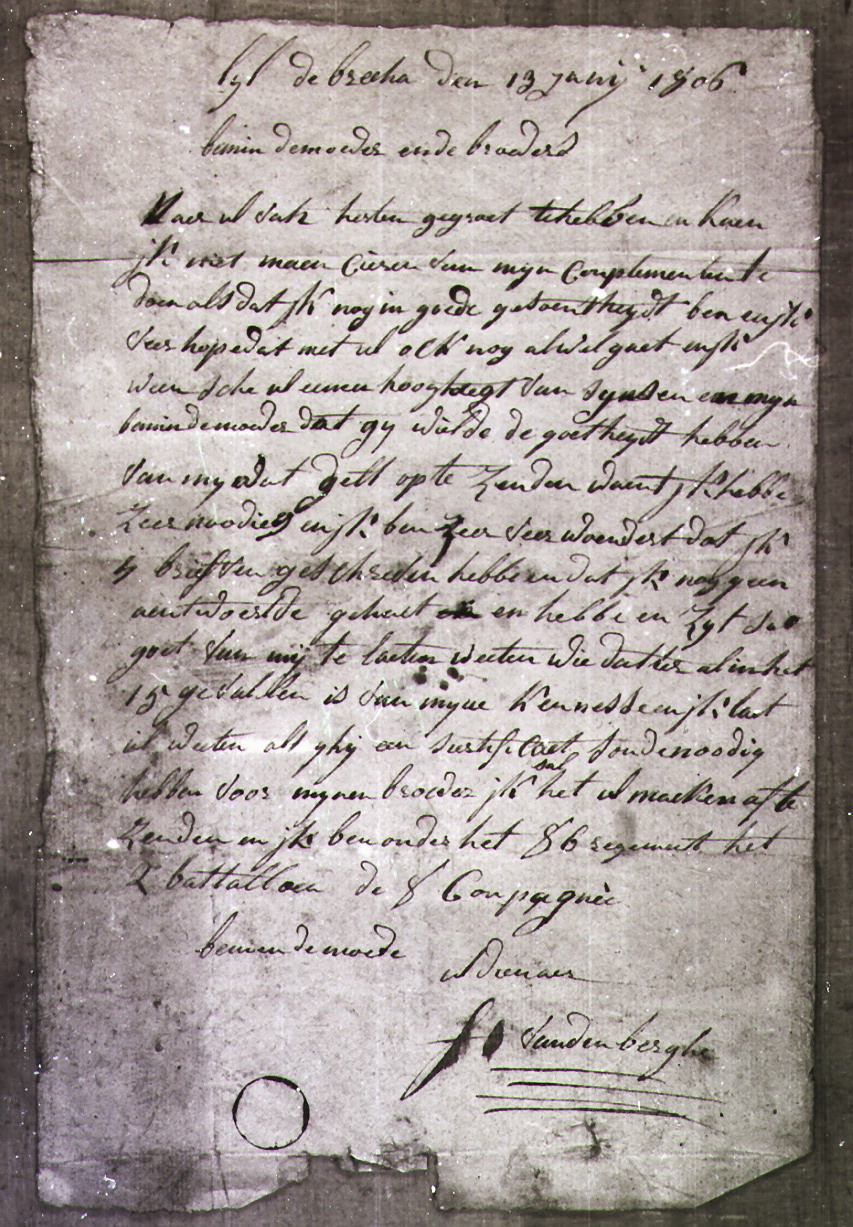 lyl de brecha den 13 Junij 1806
bemin demoeder ende broeders
Naer ul van herten gegroet tehebben en kaen
jk niet maen cieren van mijn Complementen te
doen als dat jk nog in goede gesontheydt ben en jk
veer hope dat met ul ock nog al wel gaet en jk
weensche ul eenen hooghtegt van synsen en mijn
bemindemoeder dat gy wilde de goetheydt hebben
van my wat gelt op te Zenden want jk hebbe
Zeer noodigh en jk ben Zeer veerwoendert dat jk
4 brieven geschreden hebbe en dat jk nog geen
aentwoorde gehaet en hebbe en Zyt soo
goet van mij te laeten weeten wie datter al in het
15 gevallen is van myne kennesse en jk laet
ul weeten als ghij een sertificaet soude noodig
hebben voor mynen broeder jk sal het ul maeken af te
Zenden en jk ben onder het 86 regement het
2 battallioen de 8 Conpagnie
beminde moede
ul dienaer
vanden berghe